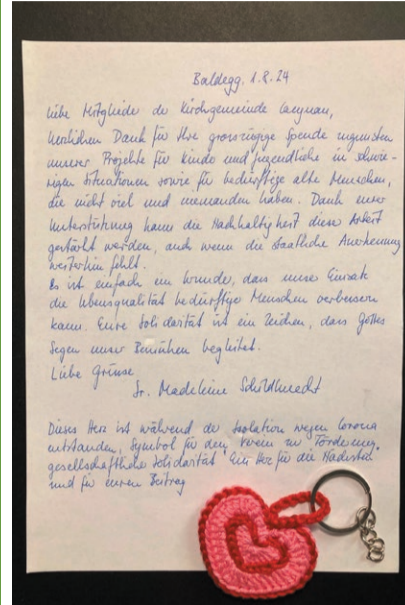 Baldegg, 1.8.24
Liebe Mitglieder der Kirchgemeinde
herzlichen Dank für Ihre grosszügige Spende zugunsten
unserer Projekte für Kinder und Jugendliche in schwie-
rigen Situationen sowie für bedürftige alte Menschen,
die nicht viel und niemanden haben. Dank eurer
Unterstützung kann die Nachhaltigkeit dieser Arbeit
gestärkt werden, auch wenn die staatliche Anerkennung
weiterhin fehlt.
Es ist einfach ein Wunder, dass unser Einsatz
die Lebensqualität bedürftiger Menschen verbessern
kann. Eure Solidarität ist ein Zeichen, dass Gottes
Segen unser Bemühen begleitet.
Liebe Grüsse
Sr. Madeleine Schildknecht
Dieses Herz ist während der Isolation wegen Corona
entstanden, Symbol für den Verein zur Förderung
gesellschaftlicher Solidarität "Ein Herz für die Nächsten"
und für euren Beitrag